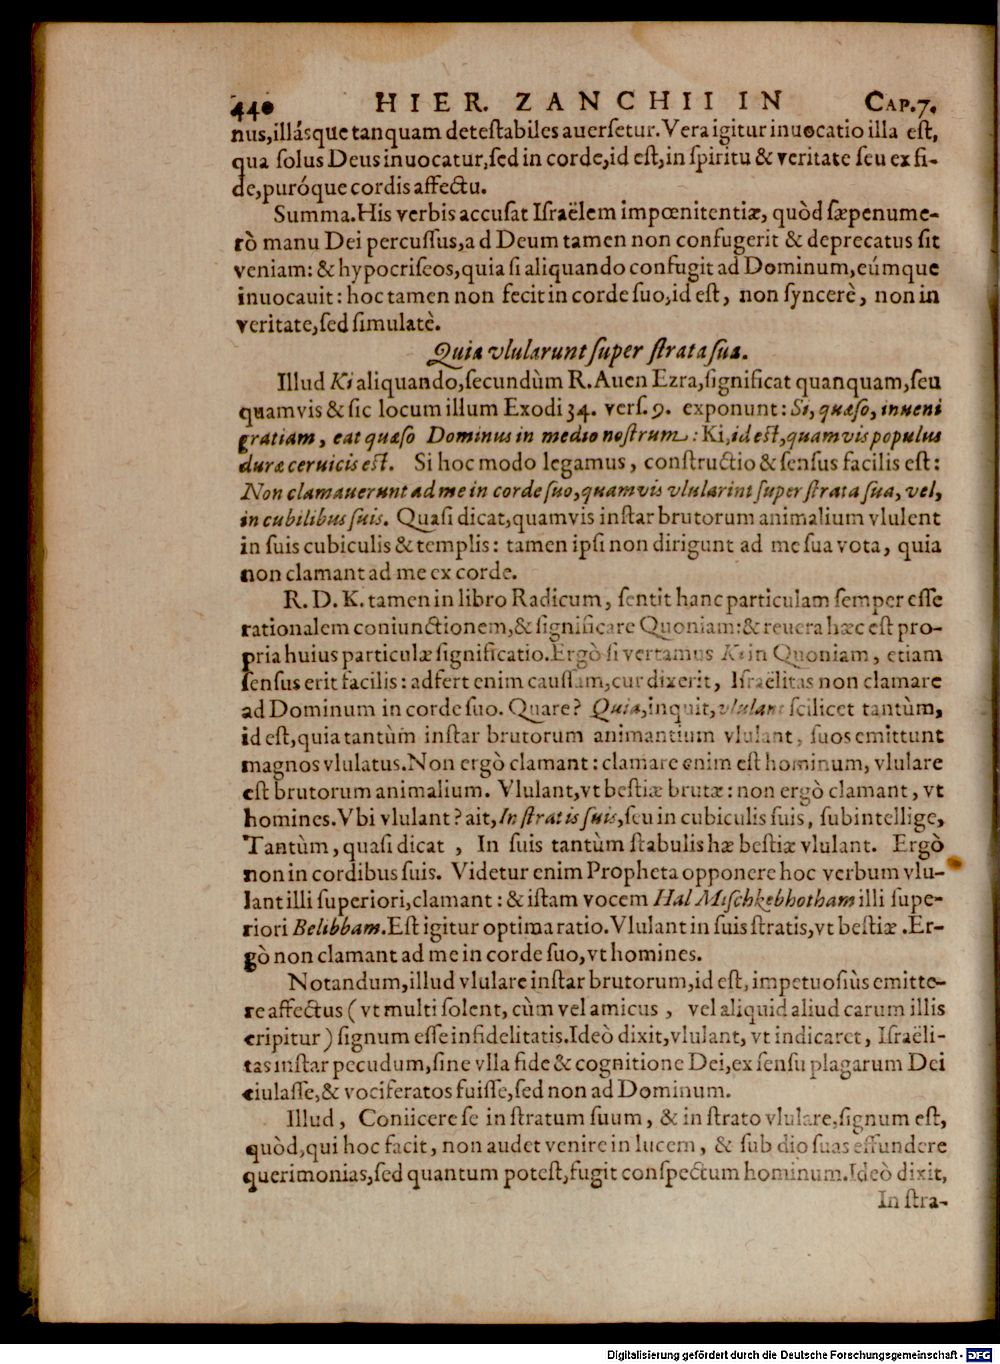 440 HIER. ZANCHII IN CAP.7.
nus,illásque tanquam detestabiles auersetur. Vera igitur inuocatio illa est,
qua solus Deus inuocatur, sed in corde, id est, in spiritu & veritate seu ex fi-
de, puróque cordis affectu.
Summa. His verbis accusat Israëlem impœnitentiæ, quòd sæpenume-
rò manu Dei percussus, ad Deum tamen non confugerit & deprecatus sit
veniam: & hypocriseos, quia si aliquando confugit ad Dominum, eúmque
inuocauit: hoc tamen non fecit in corde suo, id est, non syncerè, non in
veritate, sed simulatè.
Quia vlularunt super strata sua.
Illud Ki aliquando, secundùm R. Auen Ezra, significat quanquam, seu
quamvis & sic locum illum Exodi 34. vers. 9. exponunt: Si, quæso, inueni
gratiam, eat quæso Dominus in medio nostrum: Ki, id est, quamvis populus
duræ ceruicis est. Si hoc modo legamus, constructio & sensus facilis est:
Non clamauerunt ad me in corde suo, quamvis vlularint super strata sua, vel,
in cubilibus suis. Quasi dicat, quamvis instar brutorum animalium vlulent
in suis cubiculis & templis: tamen ipsi non dirigunt ad me sua vota, quia
non clamant ad me ex corde.
R. D. K. tamen in libro Radicum, sentit hanc particulam semper esse
rationalem coniunctionem, & significare Quoniam: & reuera hæc est pro-
pria huius particulæ significatio. Ergò si vertamus Ki in Quoniam, etiam
sensus erit facilis: adfert enim caussam, cur dixerit, Israëlitas non clamare
ad Dominum in corde suo. Quare? Quia, inquit, vlulant scilicet tantùm,
id est, quia tantùm instar brutorum animantium vlulant, suos emittunt
magnos vlulatus. Non ergò clamant: clamare enim est hominum, vlulare
est brutorum animalium. Vlulant, vt bestiæ brutæ: non ergò clamant, vt
homines. Vbi vlulant? ait, In stratis suis, seu in cubiculis suis, subintellige,
Tantùm, quasi dicat, In suis tantùm stabulis hæ bestiæ vlulant. Ergò
non in cordibus suis. Videtur enim Propheta opponere hoc verbum vlu-
lant illi superiori, clamant: & istam vocem Hal Mischkebhotham illi supe-
riori Belibbam. Est igitur optima ratio. Vlulant in suis stratis, vt bestiæ. Er-
gò non clamant ad me in corde suo, vt homines.
Notandum, illud vlulare instar brutorum, id est, impetuosiùs emitte-
re affectus (vt multi solent, cùm vel amicus, vel aliquid aliud carum illis
eripitur) signum esse infidelitatis. Ideò dixit, vlulant, vt indicaret, Israëli-
tas instar pecudum, sine vlla fide & cognitione Dei, ex sensu plagarum Dei
eiulasse, & vociferatos fuisse, sed non ad Dominum.
Illud, Coniicere se in stratum suum, & in strato vlulare, signum est,
quòd, qui hoc facit, non audet venire in lucem, & sub dio suas effundere
querimonias, sed quantum potest, fugit conspectum hominum. Ideò dixit,
In stra-
Digitalisierung gefördert durch die Deutsche Forschungsgemeinschaft - DFG